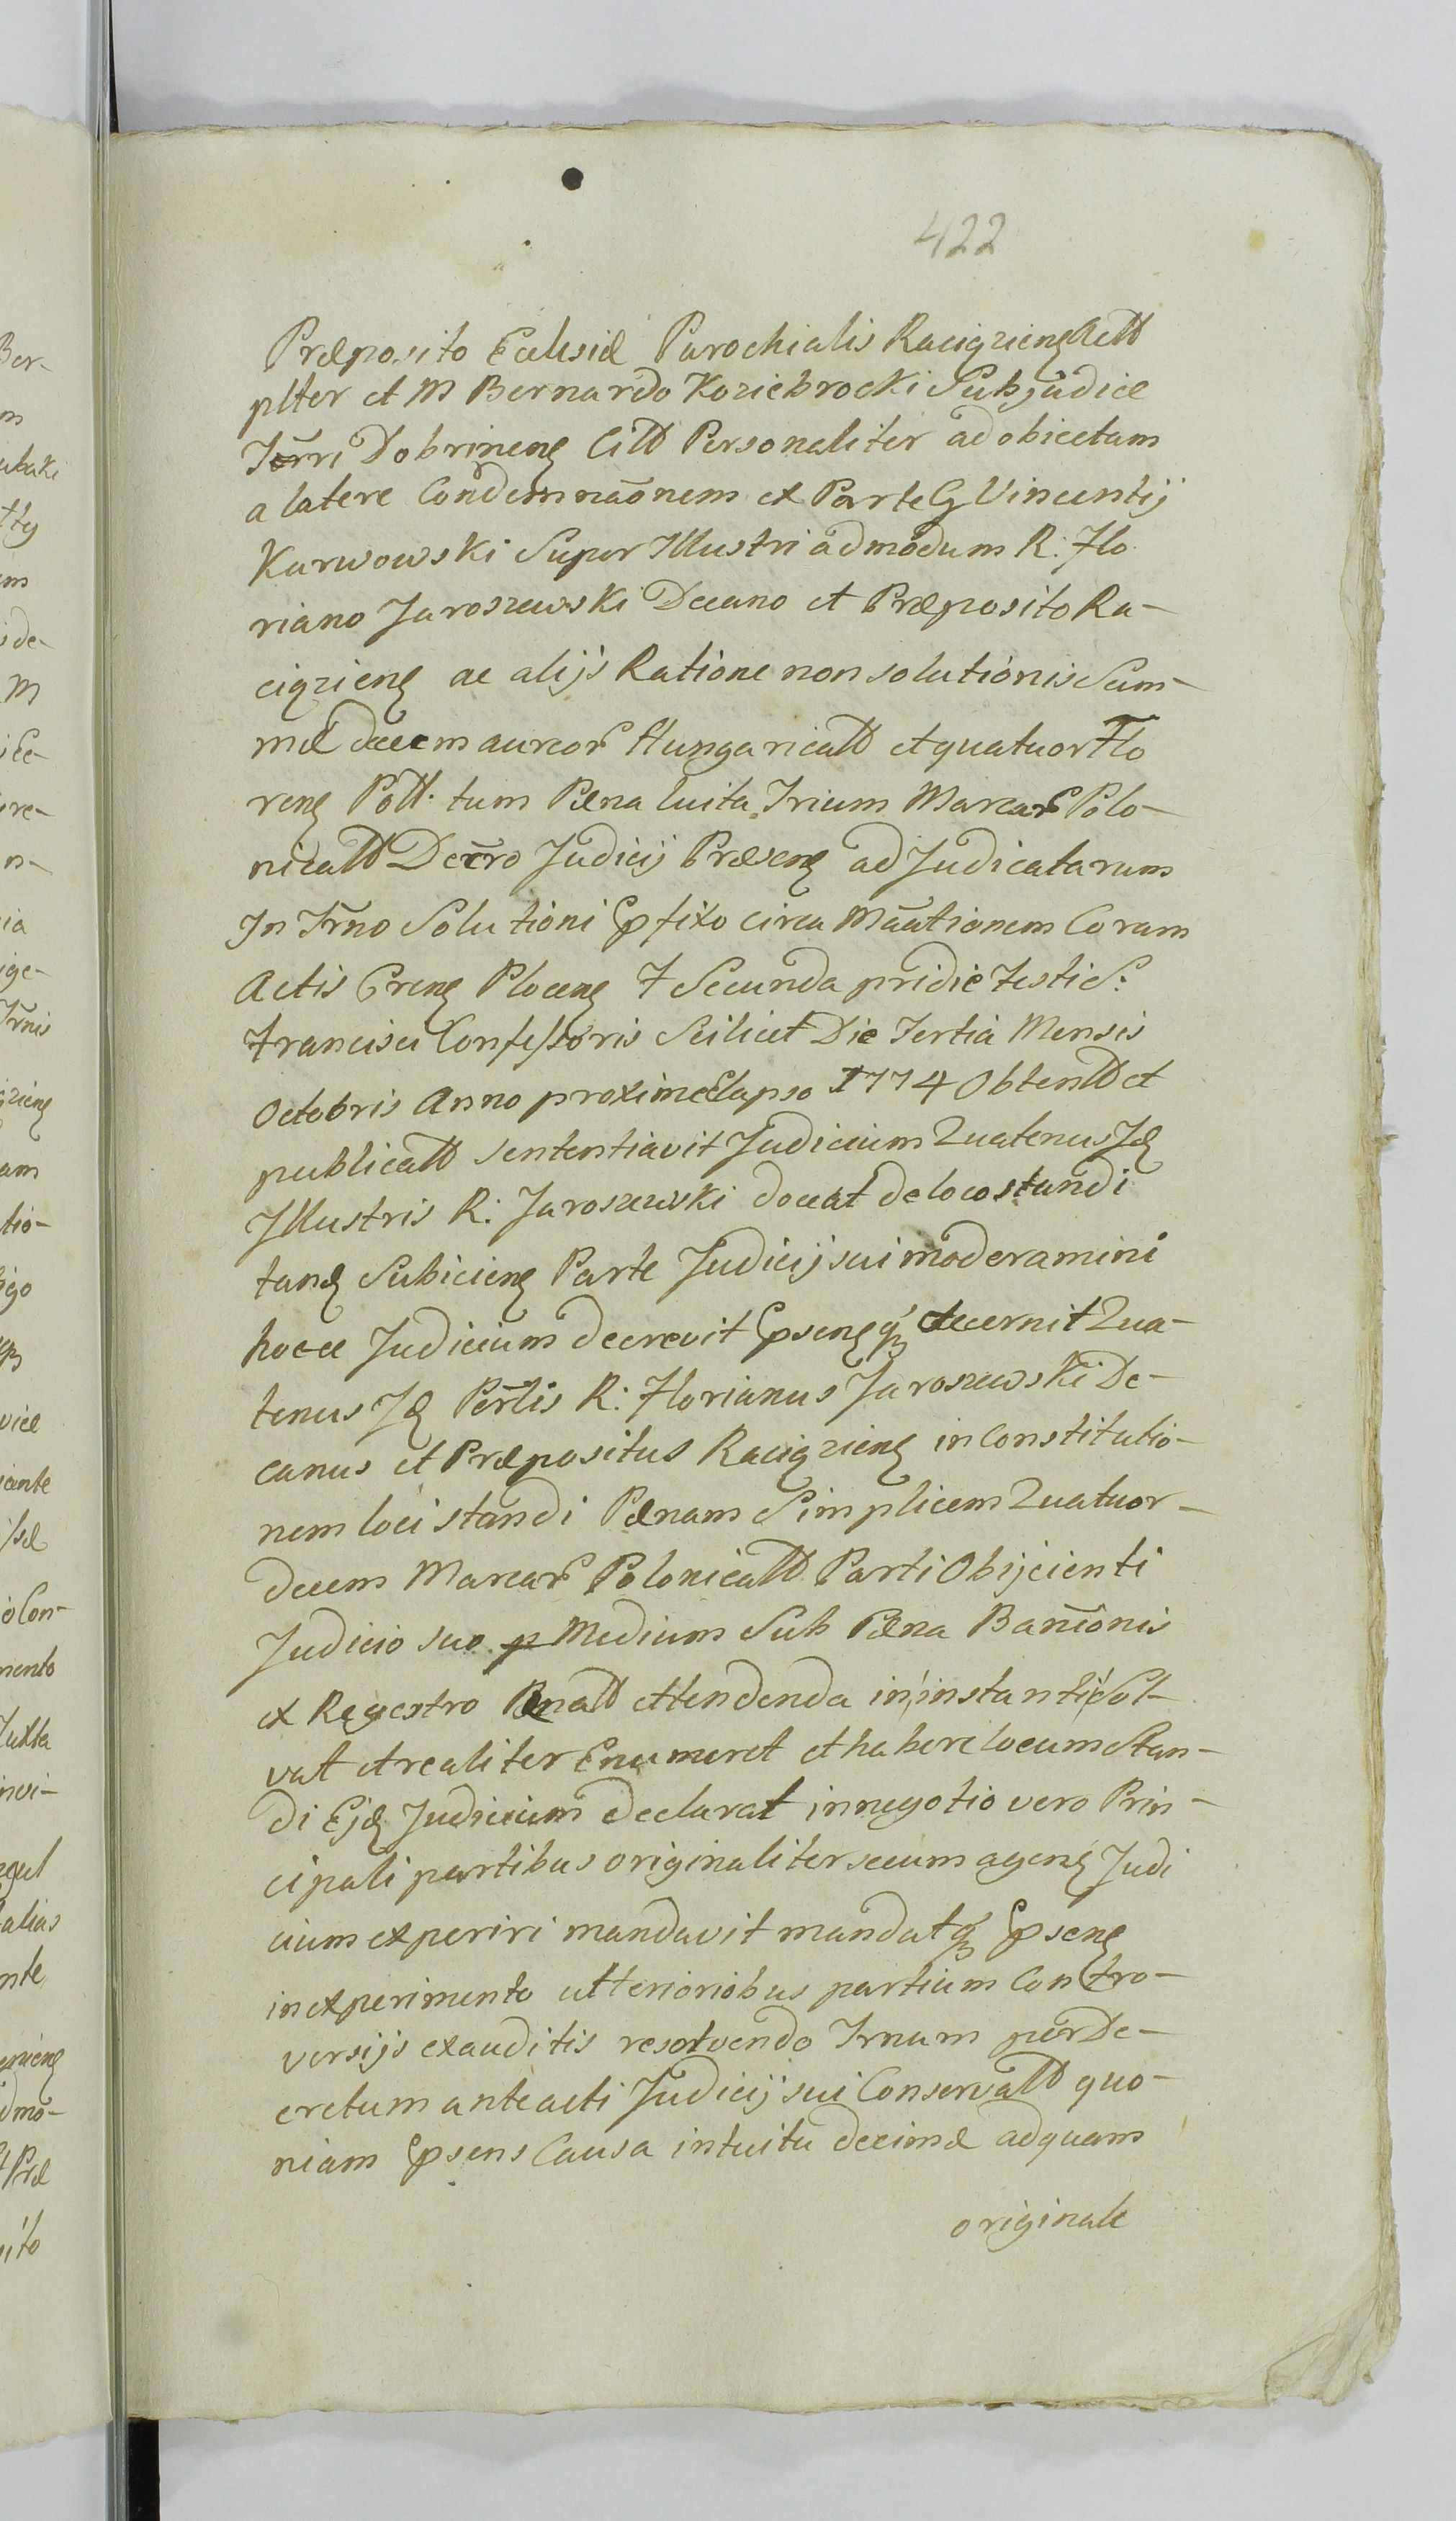 422
Præposito Ecclesiæ Parochialis Raciązieng Actt
plter et M Bernardo Koziebrocki Subjudice
Terri Dobrineng Citt Personaliter ad obicctam
a latere Condemnāōnem ex Parte G Vincentij
Karwowski Super Illustri admodum R: Flo
riano Jaroszewski Decano et Præposito Ra-
ciązieng ac alijs Ratione non solutionis Sum-
mæ decem aureor Hungaricatt et quatuor Flo
reng Poll. tum Pæna luita Trium Marcar Polo-
nicatt Decro Judicij Præseng ad Judicatarum
In Trno Solutioni Pfixo circa Māātionem Coram
Actis Creng Ploceng F Secunda pridie Festi S:
Francisci Confessoris Scilicet Die Tertia Mensis
Octobris Anno proxime Elapso 1774 Obtentt et
publicatt sententiavit Judicium Quatenus Jd
Illustris R: Jaroszewski doceat de loco standi
tand Subicieng Parte Judicij sui moderamini
hocce Judicium decrevit Psengq decernit Qua-
tenus Jd Perlis R: Florianus Jaroszewski De-
canus et Præpositus Raciązieng in Constitutio-
nem loci standi Pænam Simplicem Quatuor-
decem Marcar Polonicatt Parti Obijcienti
Judicio suo p Medium Sub Pæna Banīonis
ex Regestro Pænatt ettendenda in instanti Sol-
vat et realiter Enumeret et habere locum Stan-
di Ejd Judicium declarat in negotio vero Prin-
cipali partibus originaliter secum ageng Judi
cium experiri mandavit mandatq Pseng
in experimento ulterioribus partium Contro-
versijs exauditis resolvendo Trnum per De-
cretum anteacti Judicij sui Conservatt quo-
niam Psens Causa intuitu decimæ ad quam
originale